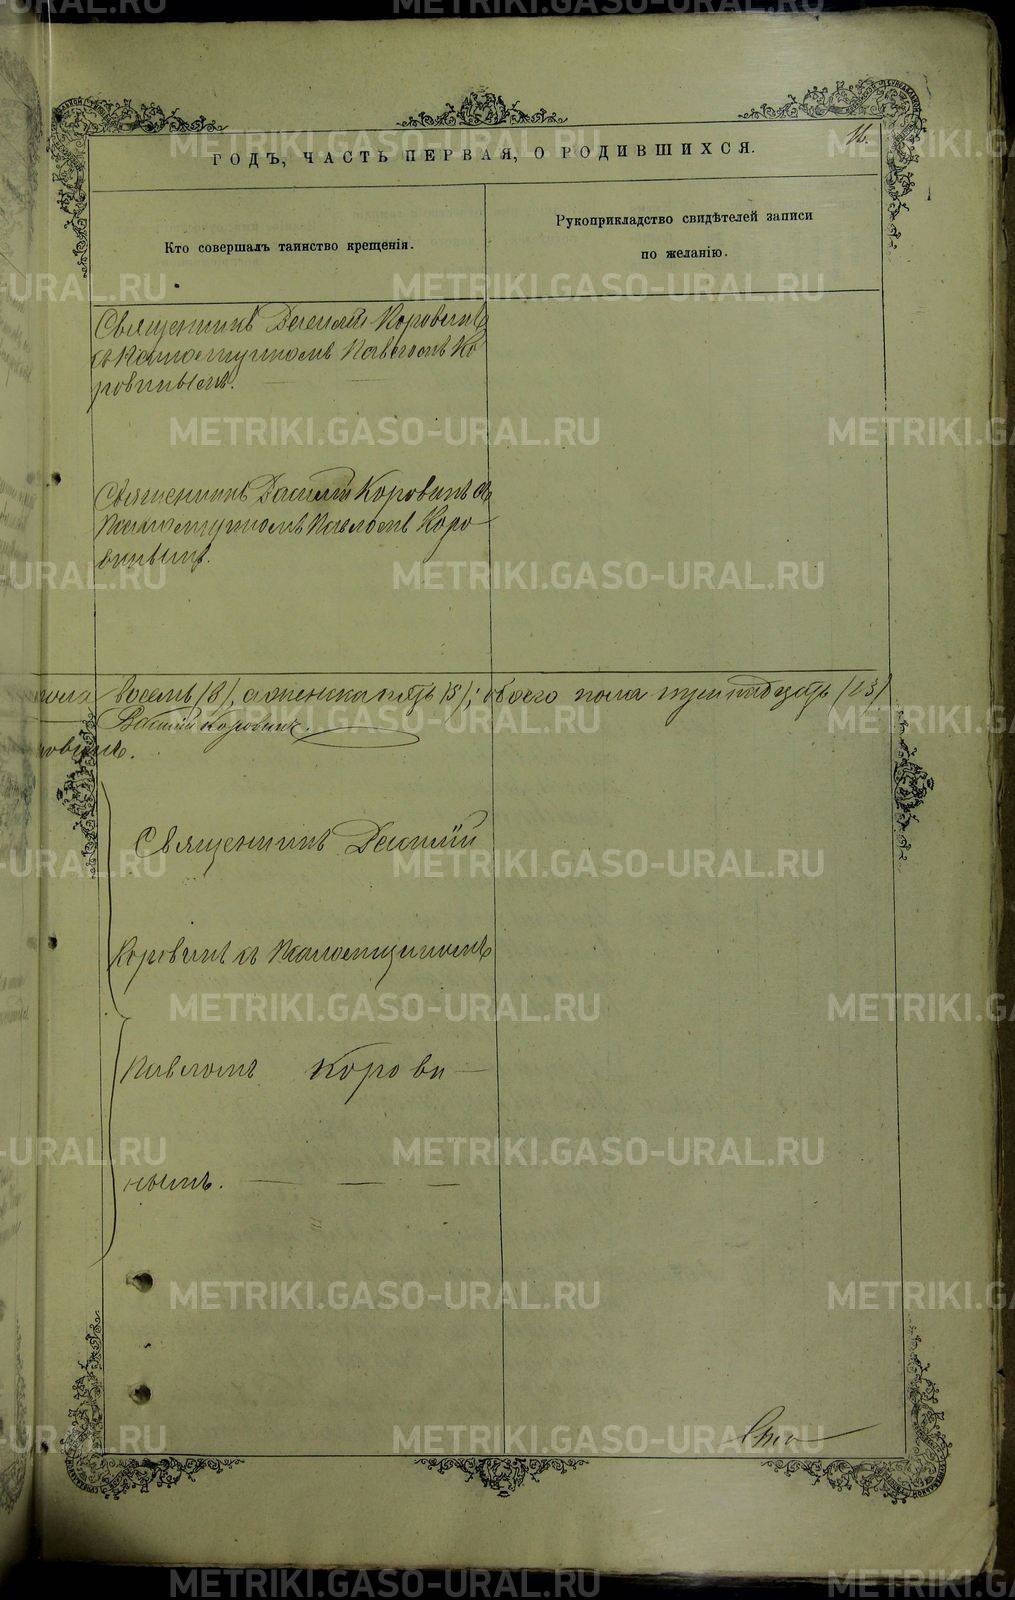 16.
ГОДЪ, ЧАСТЬ ПЕРВАЯ, О РОДИВШИХСЯ.
Кто совершалъ таинство крещенія.
Рукоприкладство свидѣтелей записи
по желанію.
Священникъ Василій Коровинъ
съ псаломщикомъ Павломъ Ко
ровинымъ.
Священникъ Василій Коровинъ съ
псаломщикомъ Павломъ Коро
винымъ.
пола восемь (8), а женска пять (5); обоего пола тринадцать (13)
Василій Коровинъ.
ровинъ.
Священникъ Василій
Коровинъ съ псаломщикомъ
Павломъ Корови—
нымъ.
METRIKI.GASO-URAL.RU